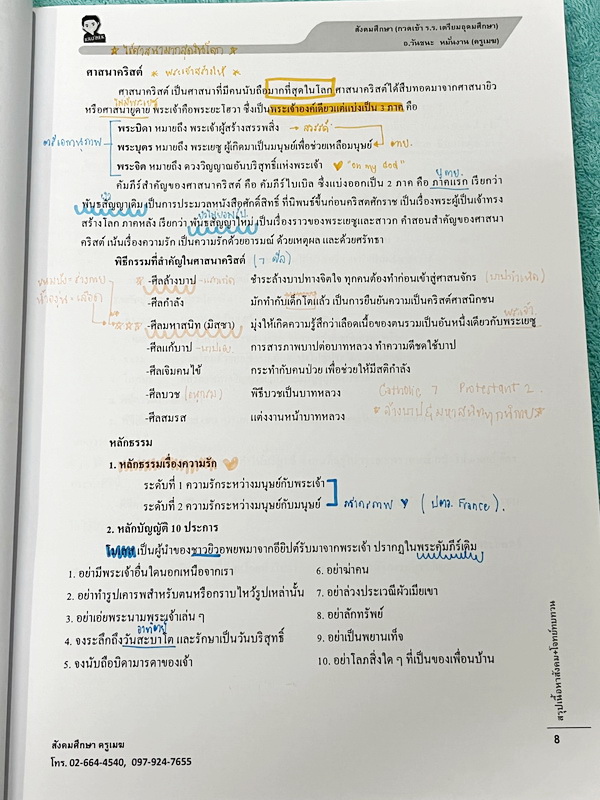 KRU'MEK
สังคมศึกษา (กวดเข้า ร.ร. เตรียมอุดมศึกษา)
อ.วันชนะ หมั่นงาน (ครูเมฆ)
ศาสนาคริสต์ พระเจ้าสร้างโลก
ศาสนาคริสต์ เป็นศาสนาที่มีคนนับถือมากที่สุดในโลก ศาสนาคริสต์ได้สืบทอดมาจากศาสนายิว
หรือศาสนายูดาย พระเจ้าคือพระยะโฮวา ซึ่งเป็นพระเจ้าองค์เดียวแต่แบ่งเป็น 3 ภาค คือ
พระบิดา หมายถึง พระเจ้าผู้สร้างสรรพสิ่ง สวรรค์
ตรีเอกานุภาพ
พระบุตร หมายถึง พระเยซู ผู้เกิดมาเป็นมนุษย์เพื่อช่วยเหลือมนุษย์
พระจิต หมายถึง ดวงวิญญาณอันบริสุทธิ์แห่งพระเจ้า "oh my god"
คัมภีร์สำคัญของศาสนาคริสต์ คือ คัมภีร์ไบเบิล ซึ่งแบ่งออกเป็น 2 ภาค คือ ภาคแรก เรียกว่า
พันธสัญญาเดิม เป็นการประมวลหนังสือศักดิ์สิทธิ์ ที่นิพนธ์ขึ้นก่อนคริสตศักราช เป็นเรื่องพระผู้เป็นเจ้าทรง
สร้างโลก ภาคหลัง เรียกว่า พันธสัญญาใหม่ เป็นเรื่องราวของพระเยซูและสาวก คำสอนสำคัญของศาสนา
คริสต์ เน้นเรื่องความรัก เป็นความรักด้วยอารมณ์ ด้วยเหตุผล และด้วยศรัทธา
พิธีกรรมที่สำคัญในศาสนาคริสต์ (7 ศีล)
-ศีลล้างบาป ชำระล้างบาปทางจิตใจ ทุกคนต้องทำก่อนเข้าสู่ศาสนจักร
-ศีลกำลัง มักทำกับเด็กโตแล้ว เป็นการยืนยันความเป็นคริสต์ศาสนิกชน
พระเจ้า
-ศีลมหาสนิท (มิสซา) มุ่งให้เกิดความรู้สึกว่าเลือดเนื้อของตนรวมเป็นอันหนึ่งเดียวกับพระเยซู
-ศีลแก้บาป การสารภาพบาปต่อบาทหลวง ทำความดีชดใช้บาป
-ศีลเจิมคนไข้ กระทำกับคนป่วย เพื่อช่วยให้มีสติกำลัง
-ศีลบวช (อนุกรม) พิธีบวชเป็นบาทหลวง Catholic 7 Protestant 2
-ศีลสมรส แต่งงานหน้าบาทหลวง
หลักธรรม
1. หลักธรรมเรื่องความรัก
ระดับที่ 1 ความรักระหว่างมนุษย์กับพระเจ้า
ระดับที่ 2 ความรักระหว่างมนุษย์กับมนุษย์ ภราดรภาพ (ปตว. France).
2. หลักบัญญัติ 10 ประการ
โมเสส เป็นผู้นำของชาวยิวอพยพมาจากอียิปต์รับมาจากพระเจ้า ปรากฏในพระคัมภีร์เดิม
1. อย่ามีพระเจ้าอื่นใดนอกเหนือจากเรา
2. อย่าทำรูปเคารพสำหรับตนหรือกราบไหว้รูปเหล่านั้น
3. อย่าเอ่ยพระนามพระเจ้าเล่น ๆ
อาทิตย์
4. จงระลึกถึงวันสะบาโต และรักษาเป็นวันบริสุทธิ์
5. จงนับถือบิดามารดาของเจ้า
6. อย่าฆ่าคน
7. อย่าล่วงประเวณีผัวเมียเขา
8. อย่าลักทรัพย์
9. อย่าเป็นพยานเท็จ
10. อย่าโลภสิ่งใด ๆ ที่เป็นของเพื่อนบ้าน
สรุปเนื้อหาสังคม+โจทย์ทบทวน
8
สังคมศึกษา ครูเมฆ
โทร. 02-664-4540, 097-924-7655